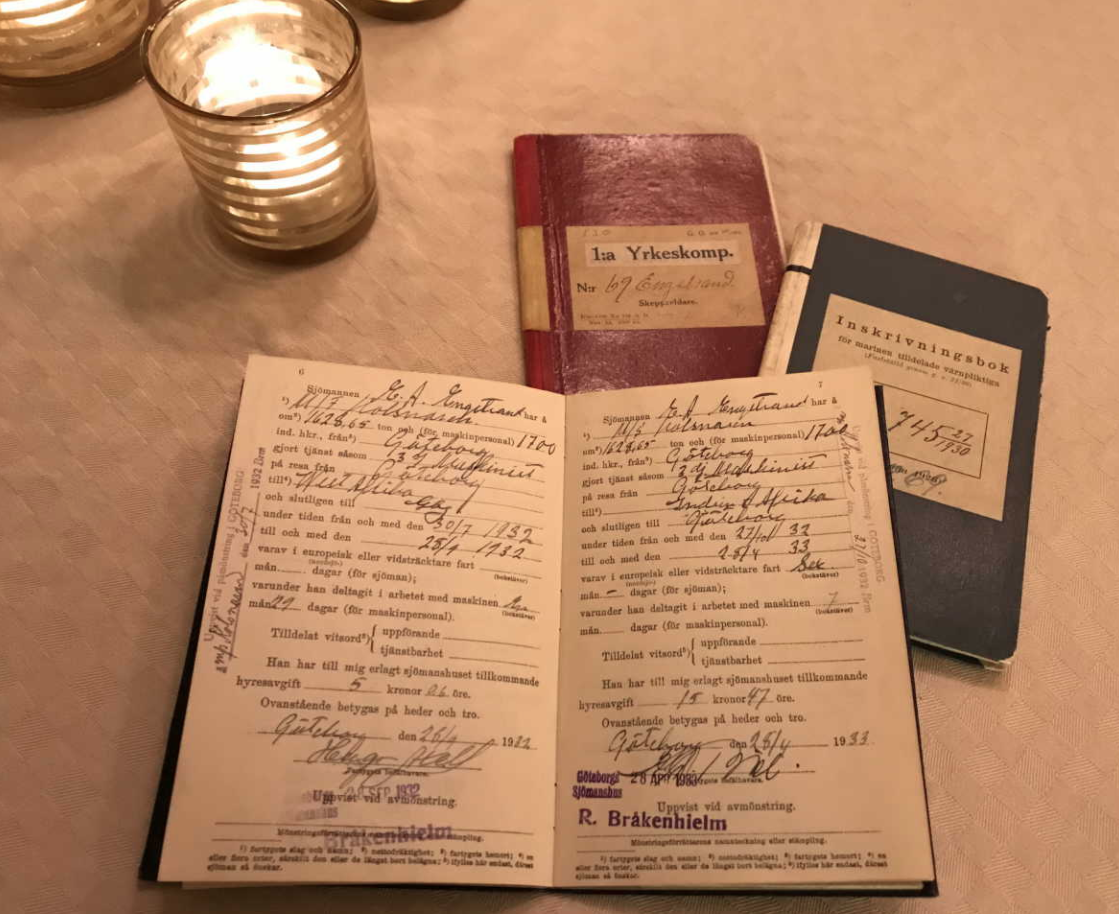 1:a Yrkeskomp.
N:r 69 Engstrand.
Skeppsvidare.
Inskrivningsbok
för marinen tilldelade värnpliktiga
745 27/1930
6
Sjömannen E. A. Engstrand har å
¹) M/S Kolsnaren.
om²) 1628,65 ton och (för maskinpersonal) 1700
ind. hkr., från³) Göteborg
gjort tjänst såsom 3 dj Maskinist
på resa från Göteborg
till⁴)
och slutligen till Gbg
under tiden från och med den 30/7 1932
till och med den 28/9 1932
varav i europeisk eller vidsträcktare fart
(nordsjö-) (bokstäver)
mån. dagar (för sjöman);
varunder han deltagit i arbetet med maskinen
(bokstäver)
mån 29 dagar (för maskinpersonal).
Tilldelat vitsord⁵) { uppförande
tjänstbarhet
Han har till mig erlagt sjömanshuset tillkommande
hyresavgift 5 kronor öre.
Ovanstående betygas på heder och tro.
Göteborg den 28/9 1932
Fartygets befälhavare.
SEP 1932
Uppvist vid avmönstring.
Bråkenhielm
Mönstringsförrättarens stämpling.
¹) fartygets slag och namn; ²) nettodräktighet; ³) fartygets hemort; ⁴) en
eller flera orter, särskilt den eller de längst bort belägna; ⁵) ifylles här endast, därest
sjöman så önskar.
Uppvist vid påmönstring i GÖTEBORG
den 30/7 1932
7
Sjömannen E. A. Engstrand har å
¹) M/S Kolsnaren
om²) 1628,65 ton och (för maskinpersonal) 1700
ind. hkr., från³) Göteborg
gjort tjänst såsom 2 dj Maskinist
på resa från Göteborg
till⁴) Indien & Afrika
och slutligen till Göteborg
under tiden från och med den 27/10 32
till och med den 28/4 33
varav i europeisk eller vidsträcktare fart Sex
(nordsjö-) (bokstäver)
mån – dagar (för sjöman);
varunder han deltagit i arbetet med maskinen
(bokstäver)
mån. dagar (för maskinpersonal).
Tilldelat vitsord⁵) { uppförande
tjänstbarhet
Han har till mig erlagt sjömanshuset tillkommande
hyresavgift 15 kronor 47 öre.
Ovanstående betygas på heder och tro.
Göteborg den 28/4 1933
Fartygets befälhavare.
Göteborgs 28 APR 1933
Sjömanshus
Uppvist vid avmönstring.
R. Bråkenhielm
Mönstringsförrättarens namnteckning eller stämpling.
¹) fartygets slag och namn; ²) nettodräktighet; ³) fartygets hemort; ⁴) en
eller flera orter, särskilt den eller de längst bort belägna; ⁵) ifylles här endast, därest
sjöman så önskar.
vid påmönstring i GÖTEBORG
den 27/10 1932